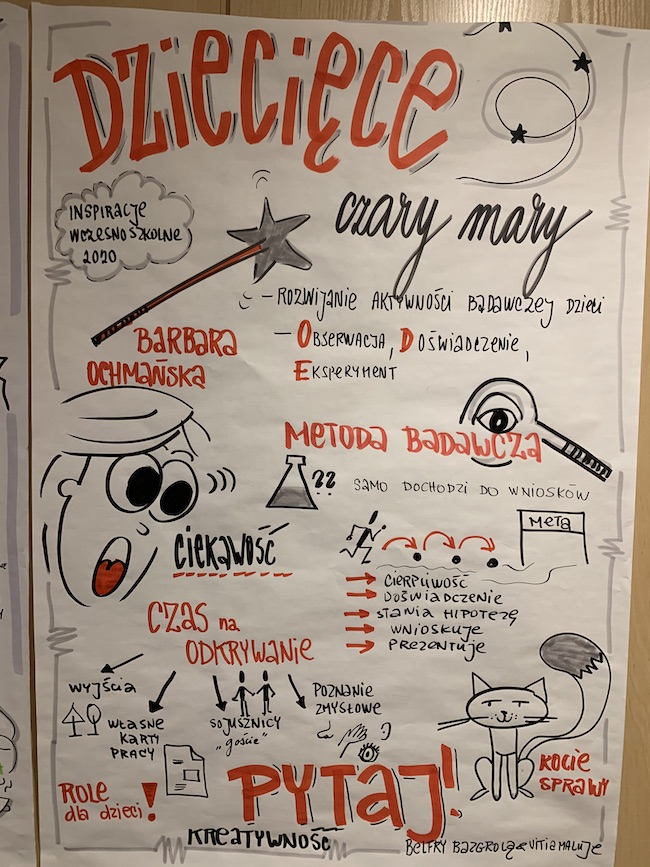 DZIECIĘCE
INSPIRACJE
WCZESNOSZKOLNE
2020
czary mary
– ROZWIJANIE AKTYWNOŚCI BADAWCZEJ DZIECI
– OBSERWACJA, DOŚWIADCZENIE,
EKSPERYMENT
BARBARA
OCHMAŃSKA
METODA BADAWCZA
?? SAMO DOCHODZI DO WNIOSKÓW
META
CIEKAWOŚĆ
→ CIERPLIWOŚĆ
→ DOŚWIADCZENIE
→ STAWIA HIPOTEZĘ
→ WNIOSKUJE
→ PREZENTUJE
CZAS na
ODKRYWANIE
WYJŚCIA
WŁASNE
KARTY
PRACY
SOJUSZNICY
„goście”
POZNANIE
ZMYSŁOWE
ROLE
dla dzieci!
PYTAJ!
KOCIE
SPRAWY
KREATYWNOŚĆ
BELFRY BAZGROLĄ & VITIAMALUJE